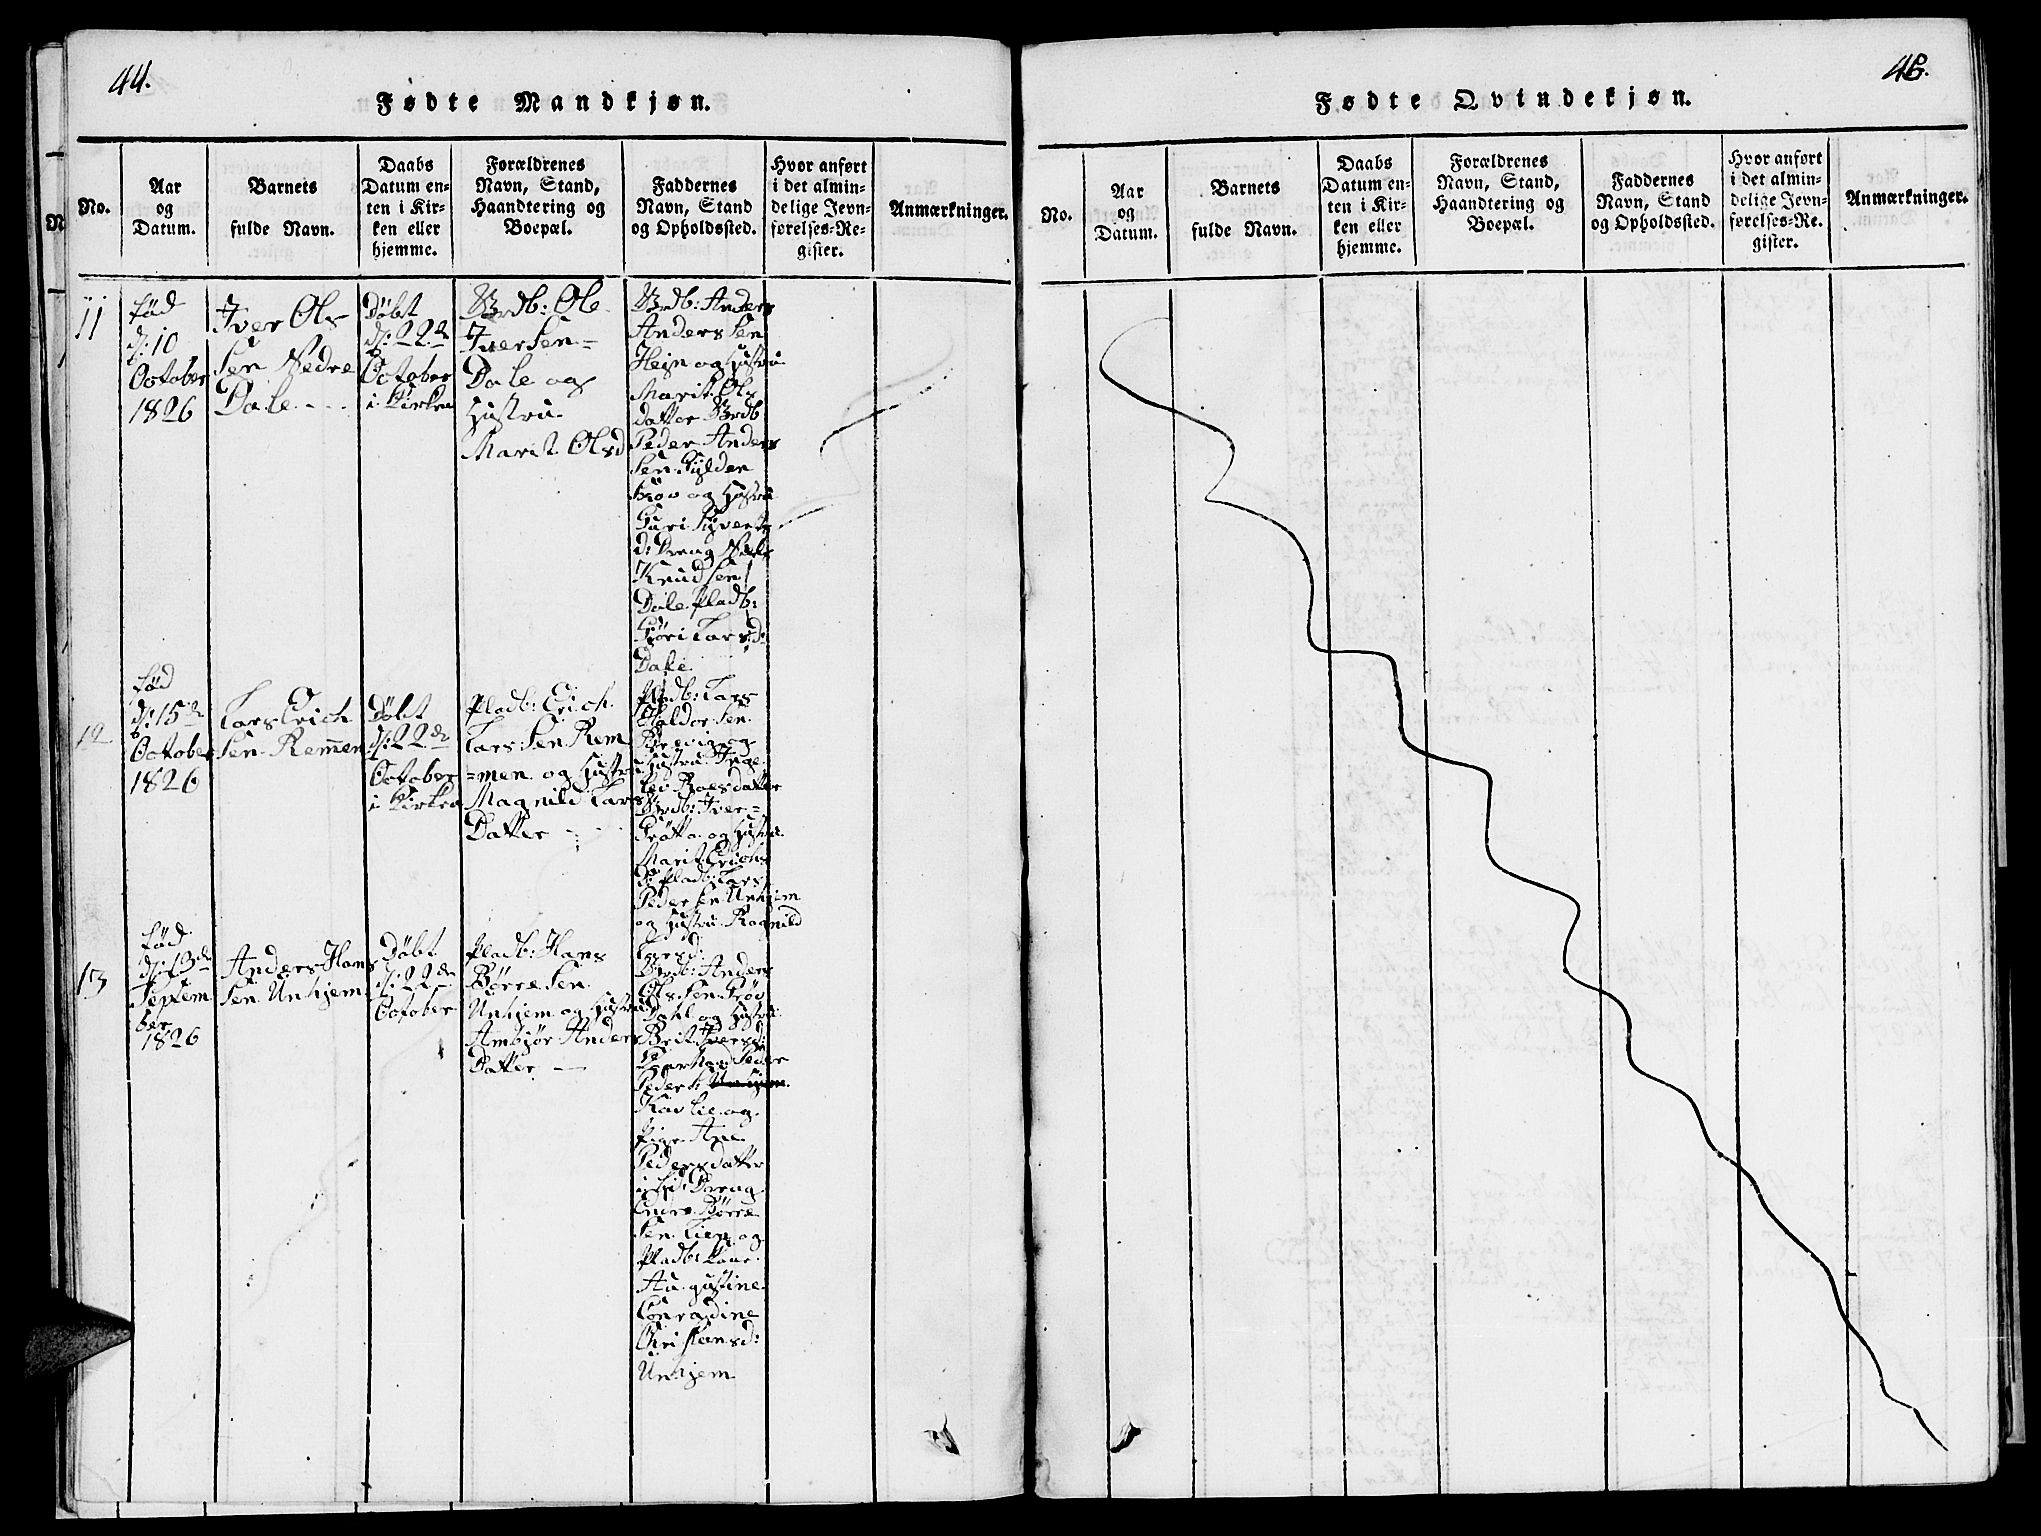 44.
Fødte Mandkjøn.
No.
Aar
og
Datum.
Barnets
fulde Navn.
Daabs
Datum en-
ten i Kir-
ken eller
hjemme.
Forældrenes
Navn, Stand,
Haandtering og
Boepæl.
Faddernes
Navn, Stand
og Opholdssted.
Hvor anført
i det almin-
delige Jevn-
førelses-Re-
gister.
Anmærkninger.
11
fød
d: 10
October
1826
Iver Ols
Sen Nedre
Dale
Døbt
d: 22de
October
i Kirken
Brdb: Ole
IverSen=
Dale og
Hustru
Marit Olsd
Brdb: Anders
AndersSen
Hejn og Hustru
Marit Ols
datter Brdb
Peder Anders
Sen Gylden
og Hustru
Guri
d: Dreng Niels
KnudSen
Dale Pladb:
Lars d:
Dale
12
fød
d: 15de
October
1826
Lars Erich
Sen Remmen
Døbt
d: 22de
October
i Kirken
Pladb: Erich
LarsSen Rem
=men og Hustru
Magnild Lars
Datter
Pladb: Lars
HaldorSen
og
Hustru Inge
datter
Brdb: Iver=
Grøtta og Hustru
Marit Erichs
d: Pladb: Lars
PederSen Unhjem
og Hustru Ragnild
Larsd:
13
fød
d: 13de
Septem
ber
1826
Anders Hans
Sen Unhjem
Døbt
d: 22de
October
Pladb: Hans
BørreSen
Unhjem og Hustru
Ambjør Anders
Datter
Brdb: Anders
OlsSen
Dahl og Hustru
Brit Iversd:
Peder
Peder S:
og
Pige Ane
Pedersdatter
Dreng
Børre
Sen og
Pladb:
Augustine
Conradine
Christiansd:
Unhjem
Fødte Qvindekjøn.
No.
Aar
og
Datum.
Barnets
fulde Navn.
Daabs
Datum en-
ten i Kir-
ken eller
hjemme.
Forældrenes
Navn, Stand,
Haandtering og
Boepæl.
Faddernes
Navn, Stand
og Opholdssted.
Hvor anført
i det almin-
delige Jevn-
førelses-Re-
gister.
Anmærkninger.